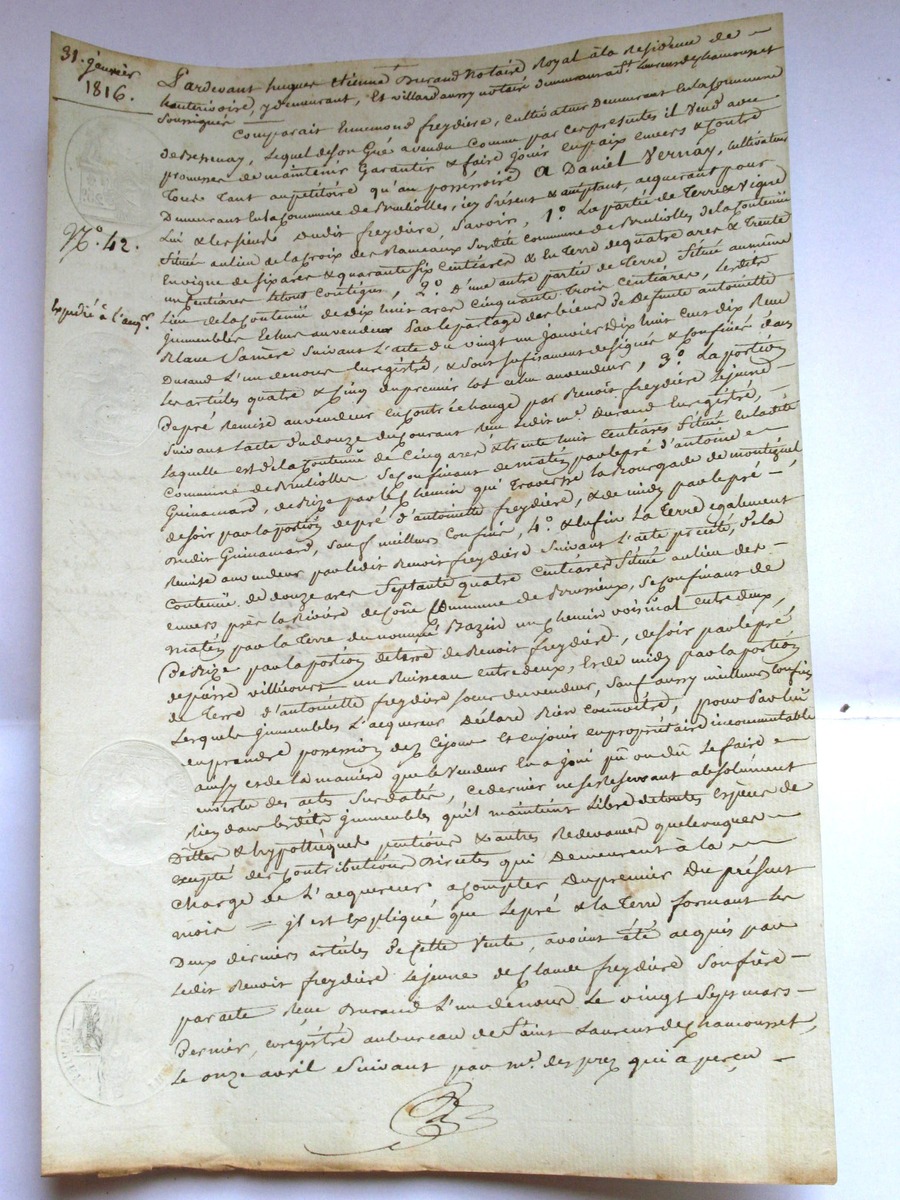 31. janvier
1816.
Pardevant hugues etienne Durand Notaire Royal à la Residence de
hauterivoire, y demeurant, Et villard aussy notaire demeurant à St. Laurent de chamousset
Soussignés
Comparait Ennemond freydiere, cultivateur Demeurant En la Commune
de Bessenay, Lequel de Son Gré a vendu Comme par ces presentes il Vend avec
promesse de maintenir Garantir & faire Jouir En paix Envers & Contre
Tous Tant au petitoire qu'au possessoire a Daniel Vernay, cultivateur
Demeurant En la Commune de Brullioles, icy présent & acceptant, acquerant pour
Lui & les siens dudit freydiere, Savoir, 1.º La partie de Terre & Vigne
Situé au lieu de la croix des Rameaux Susdite commune de Brullioles de la Contenue
En vigne de six ares & quarante six Centiares & En Terre de quatre ares & trente
un Centiares le tout Contigue, 2.º D'une autre partie de Terre Situé au même
Lieu de la Contenue de Dix huit ares Cinquante Trois Centiares, Lesdits
No. 42.
Expédié à l'acqr.
Immeubles Echus au vendeur Par le partage des biens de Defunte antoinette
Blanc Sa mère Suivant L'acte du vingt un Janvier Dix huit Cent dix Reçu
Durand L'un de nous Enregistré, & Sont suffisament designés & Confinés dans
Les articles quatre & Cinq du premier Lot Echu au vendeur, 3.º La portion
De pré Remise au vendeur En Contréchange par Benoit freydiere Le jeune
Suivant L'acte du douze du Courant Reçu Ledit me. Durand Enregistré,
Laquelle est de la Contenue de Cinq ares & trente huit Centiares Située En ladite
Commune de Brullioles Se Confinant de matin par le pré d'antoine
Guinamard, de Bize par le Chemin qui Traverse la Bourgade de montignat
de soir par la portion de pré d'antoinette freydiere, & de midy par le pré
dudit Guinamard, Sauf meilleurs Confins, 4.º & Enfin La Terre également
Remise au vendeur par ledit Benoit freydiere Suivant L'acte precité, de la
Contenue de douze ares Septante quatre Centiares Situé au lieu des
envers près la Rivière de Commune de Brussieux, Se Confinant de
matin par la Terre du nommé Bazin un chemin voisinal entre deux,
De Bize par la portion de terre de Benoit freydiere, de soir par le pré
de pierre villecourt un Ruisseau entre deux, Et de midy par la portion
de Terre d'antoinette freydiere soeur du vendeur, Sauf aussy meilleurs Confins
Lesquels Immeubles L'acquereur Déclare Bien Connoître, pour Par lui
en prendre possession dez Cejour Et en jouir en propriétaire incommutable
ainsy et de la maniere que le Vendeur En a joui pu ou du Le faire
en vertu des actes Susdatés, ce dernier ne se Reservant absolument
Rien dans lesdits Immeubles qu'il maintient Libre de toutes Espèces de
Dettes & hypothèques pentions & autres Redevances quelconques
excepté des Contributions Directes qui Demeurent à la
charge de L'acquereur a Compter du premier du présent
mois = Il est Expliqué que Le pré & la Terre formant les
Deux derniers articles de Cette Vente, avoient été acquis par
Ledit Benoit freydiere Le jeune de Claude freydiere Son frère
par acte Reçu Durand L'un de nous Le vingt Sept mars
Dernier, enregistré au bureau de Saint Laurent de Chamousset,
Le onze avril Suivant par mr. desprez qui a perçu